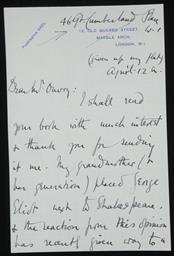 46 Gt Cumberland Place
W.1
12, OLD QUEBEC STREET,
MARBLE ARCH,
LONDON, W.1.
(Given up my flat)
April 12
I shall read
your book with much interest
& thank you for sending
it me. My grandmother (&
her generation) placed George
Eliot next to Shakespeare.
& the reaction from this opinion
has recently given way to a